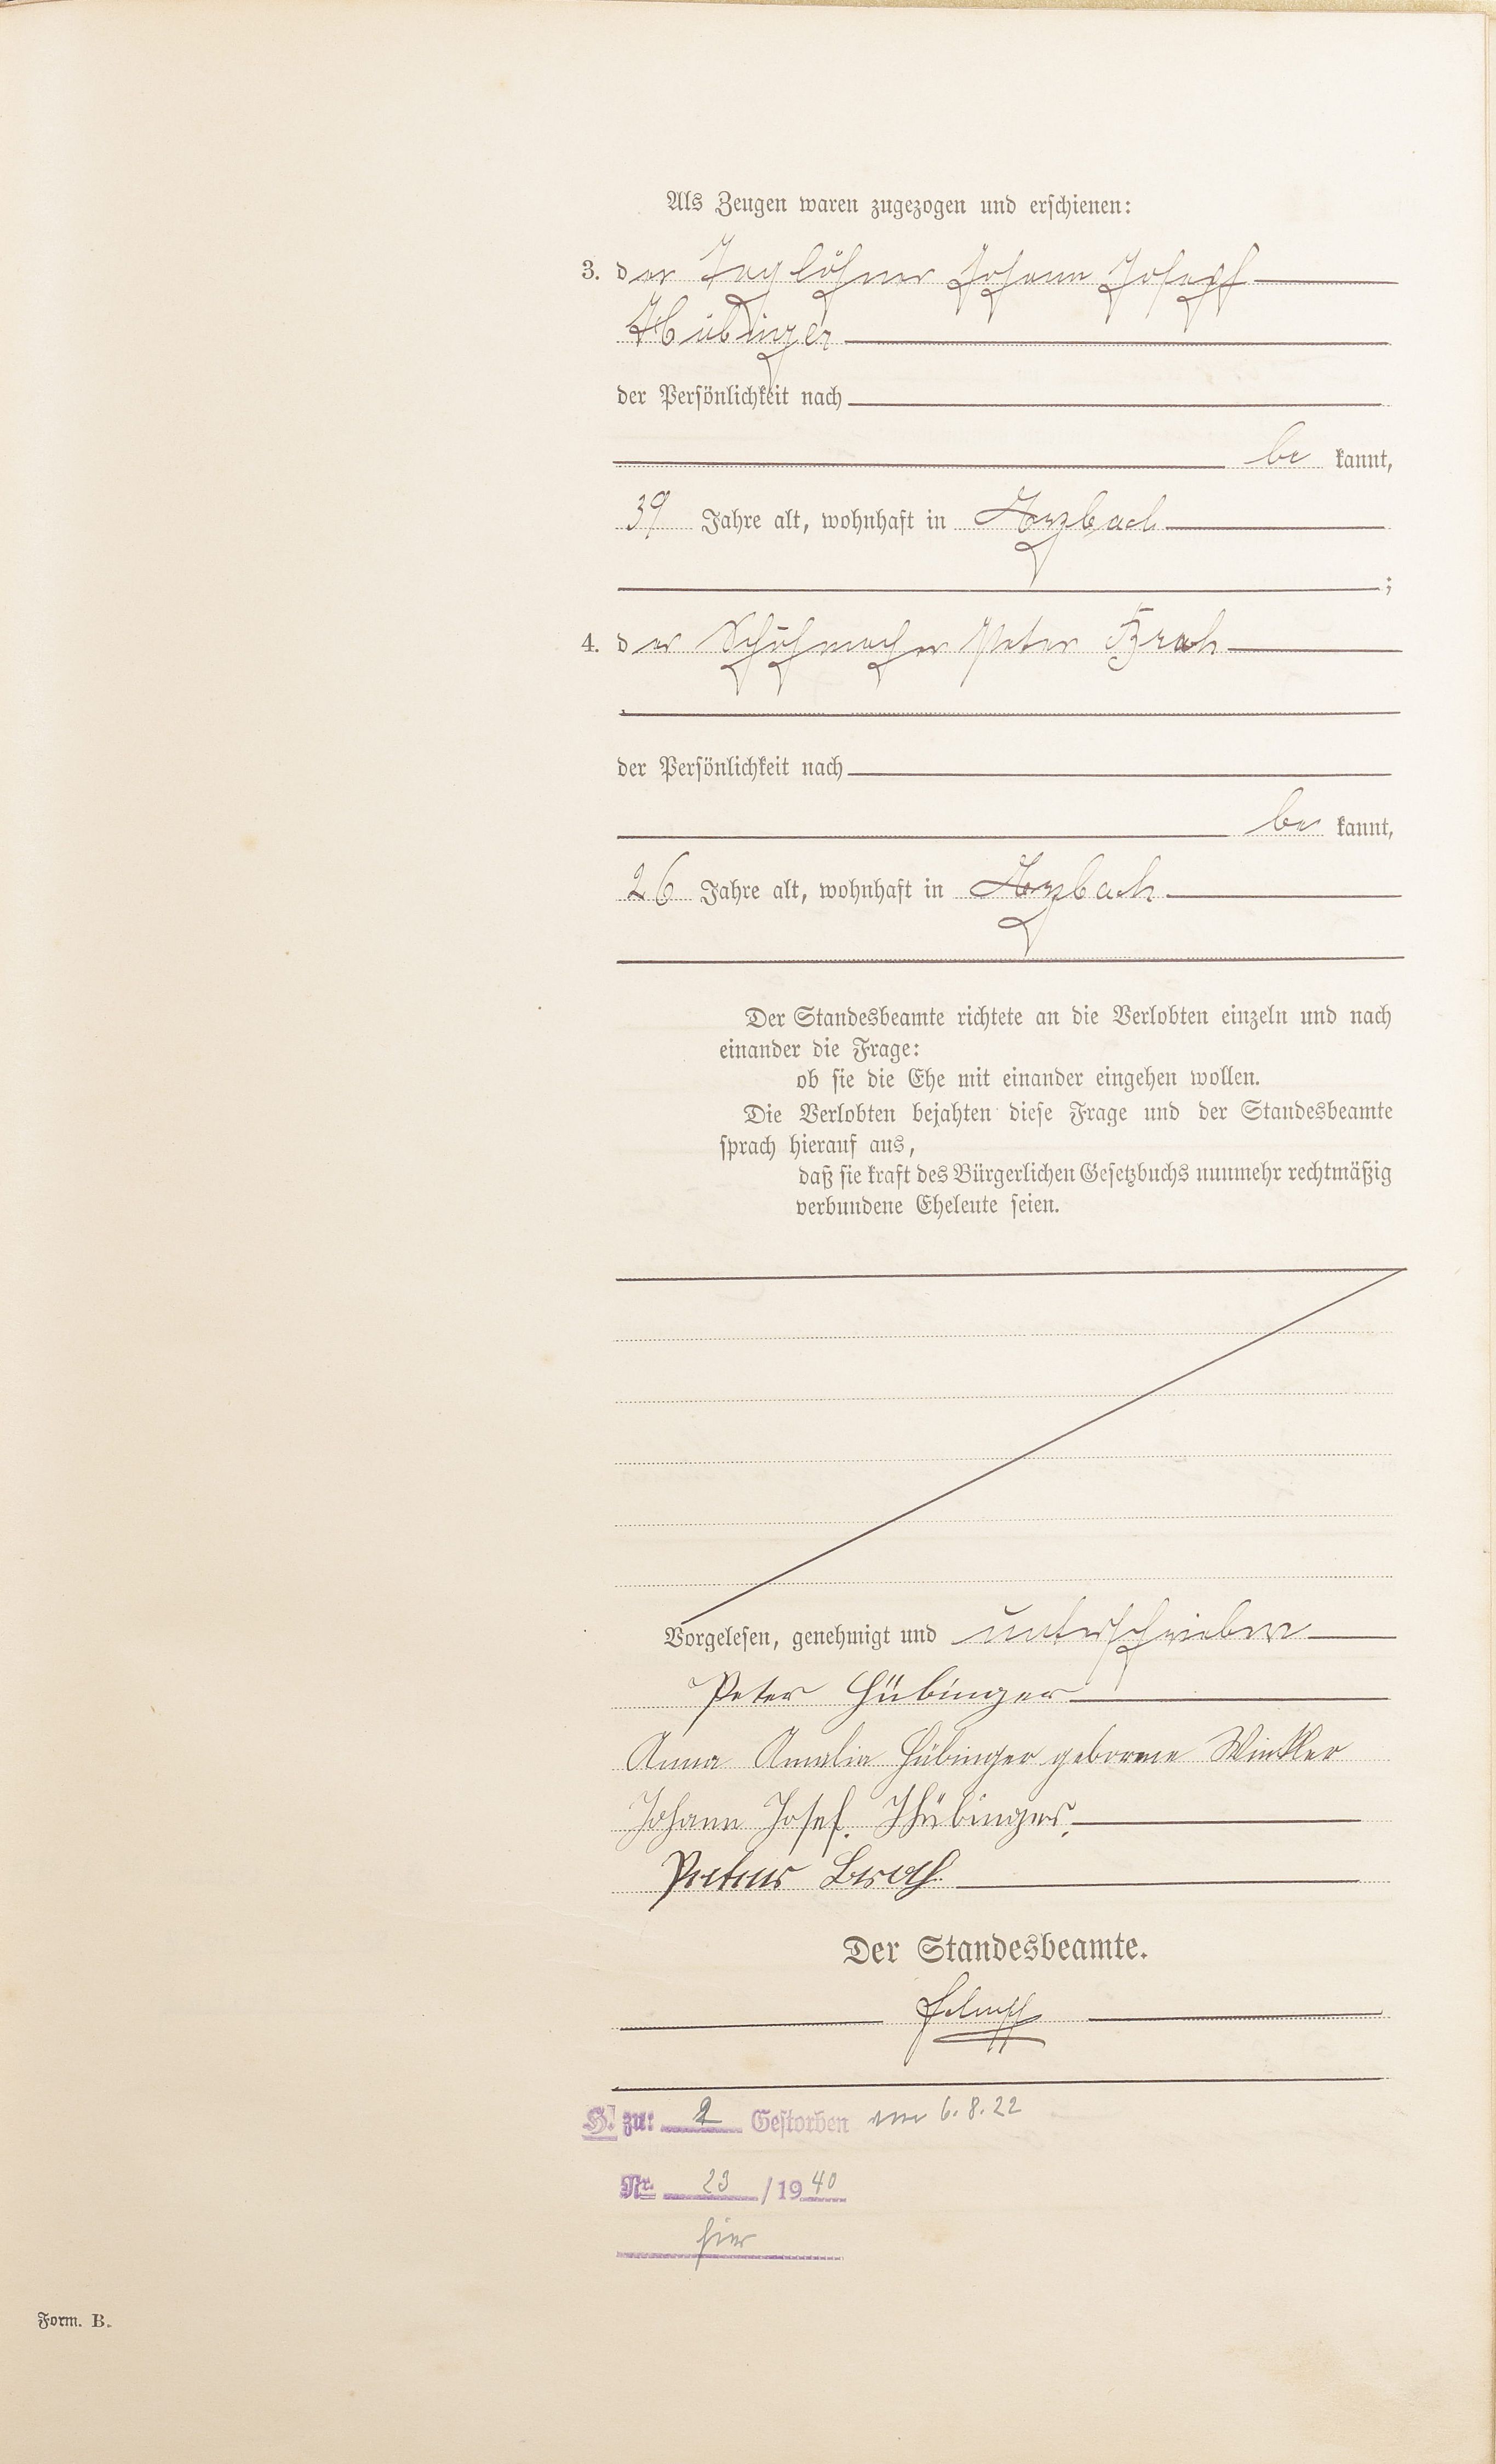 Als Zeugen waren zugezogen und erschienen:
3. der Taglöhner Johann Joseph
Hübinger
der Persönlichkeit nach
be kannt,
39 Jahre alt, wohnhaft in Arzbach
;
4. der Schuhmacher Peter Brach
der Persönlichkeit nach
be kannt,
26 Jahre alt, wohnhaft in Arzbach
Der Standesbeamte richtete an die Verlobten einzeln und nach
einander die Frage:
ob sie die Ehe mit einander eingehen wollen.
Die Verlobten bejahten diese Frage und der Standesbeamte
sprach hierauf aus,
daß sie kraft des Bürgerlichen Gesetzbuchs nunmehr rechtmäßig
verbundene Eheleute seien.
Vorgelesen, genehmigt und unterschrieben
Peter Hübinger
Anna Amalia Hübinger geborene Winkler
Johann Josef. Hübinger.
Peter Brach.
Der Standesbeamte.
zu: 2 Gestorben 6.8.22
Nr. 23 /1940
hier
Form. B.